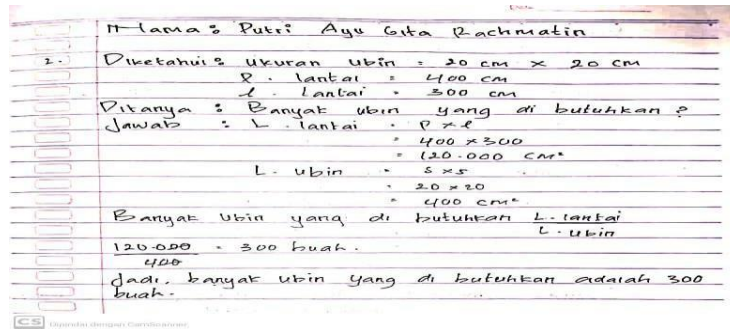 Nama : Putri Ayu Gita Rachmatin
2. Diketahui : ukuran ubin = 20 cm × 20 cm
p. lantai = 400 cm
l. Lantai = 300 cm
Ditanya : Banyak ubin yang di butuhkan ?
Jawab : L. lantai = p × l
= 400 × 300
= 120.000 cm²
L. ubin = s × s
= 20 × 20
= 400 cm²
Banyak ubin yang di butuhkan L. lantai
L. ubin
120.000 = 300 buah.
400
Jadi, banyak ubin yang di butuhkan adalah 300
buah.
CS Dipindai dengan CamScanner